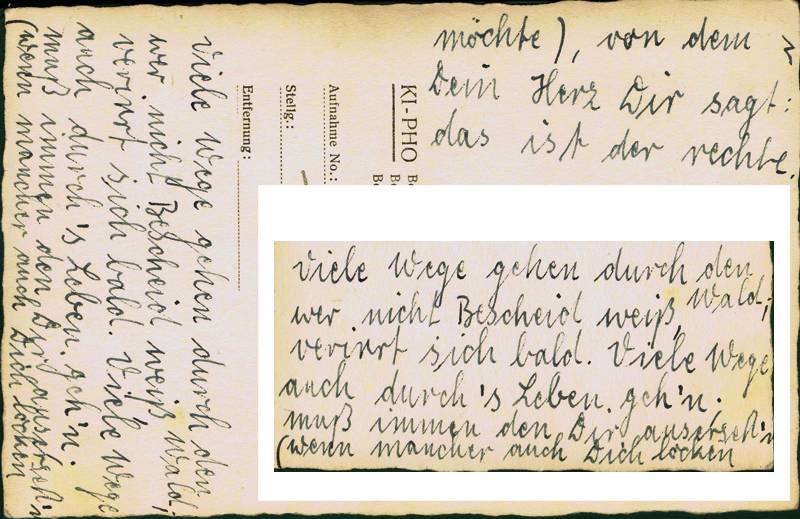 Viele Wege gehen durch den
Wald;
wer nicht Bescheid weiß,
verirrt sich bald. Viele Wege
auch durch's Leben geh'n.
muß immer den Dir auserseh'n
(wenn mancher auch Dich locken
möchte), von dem
Dein Herz Dir sagt:
das ist der rechte.
KI-PHO
Aufnahme No.:
Stellg.:
Entfernung:
Viele Wege gehen durch den
Wald;
wer nicht Bescheid weiß,
verirrt sich bald. Viele Wege
auch durch's Leben. geh'n.
muß immen den Dir auserseh'n
(wenn mancher auch Dich locken